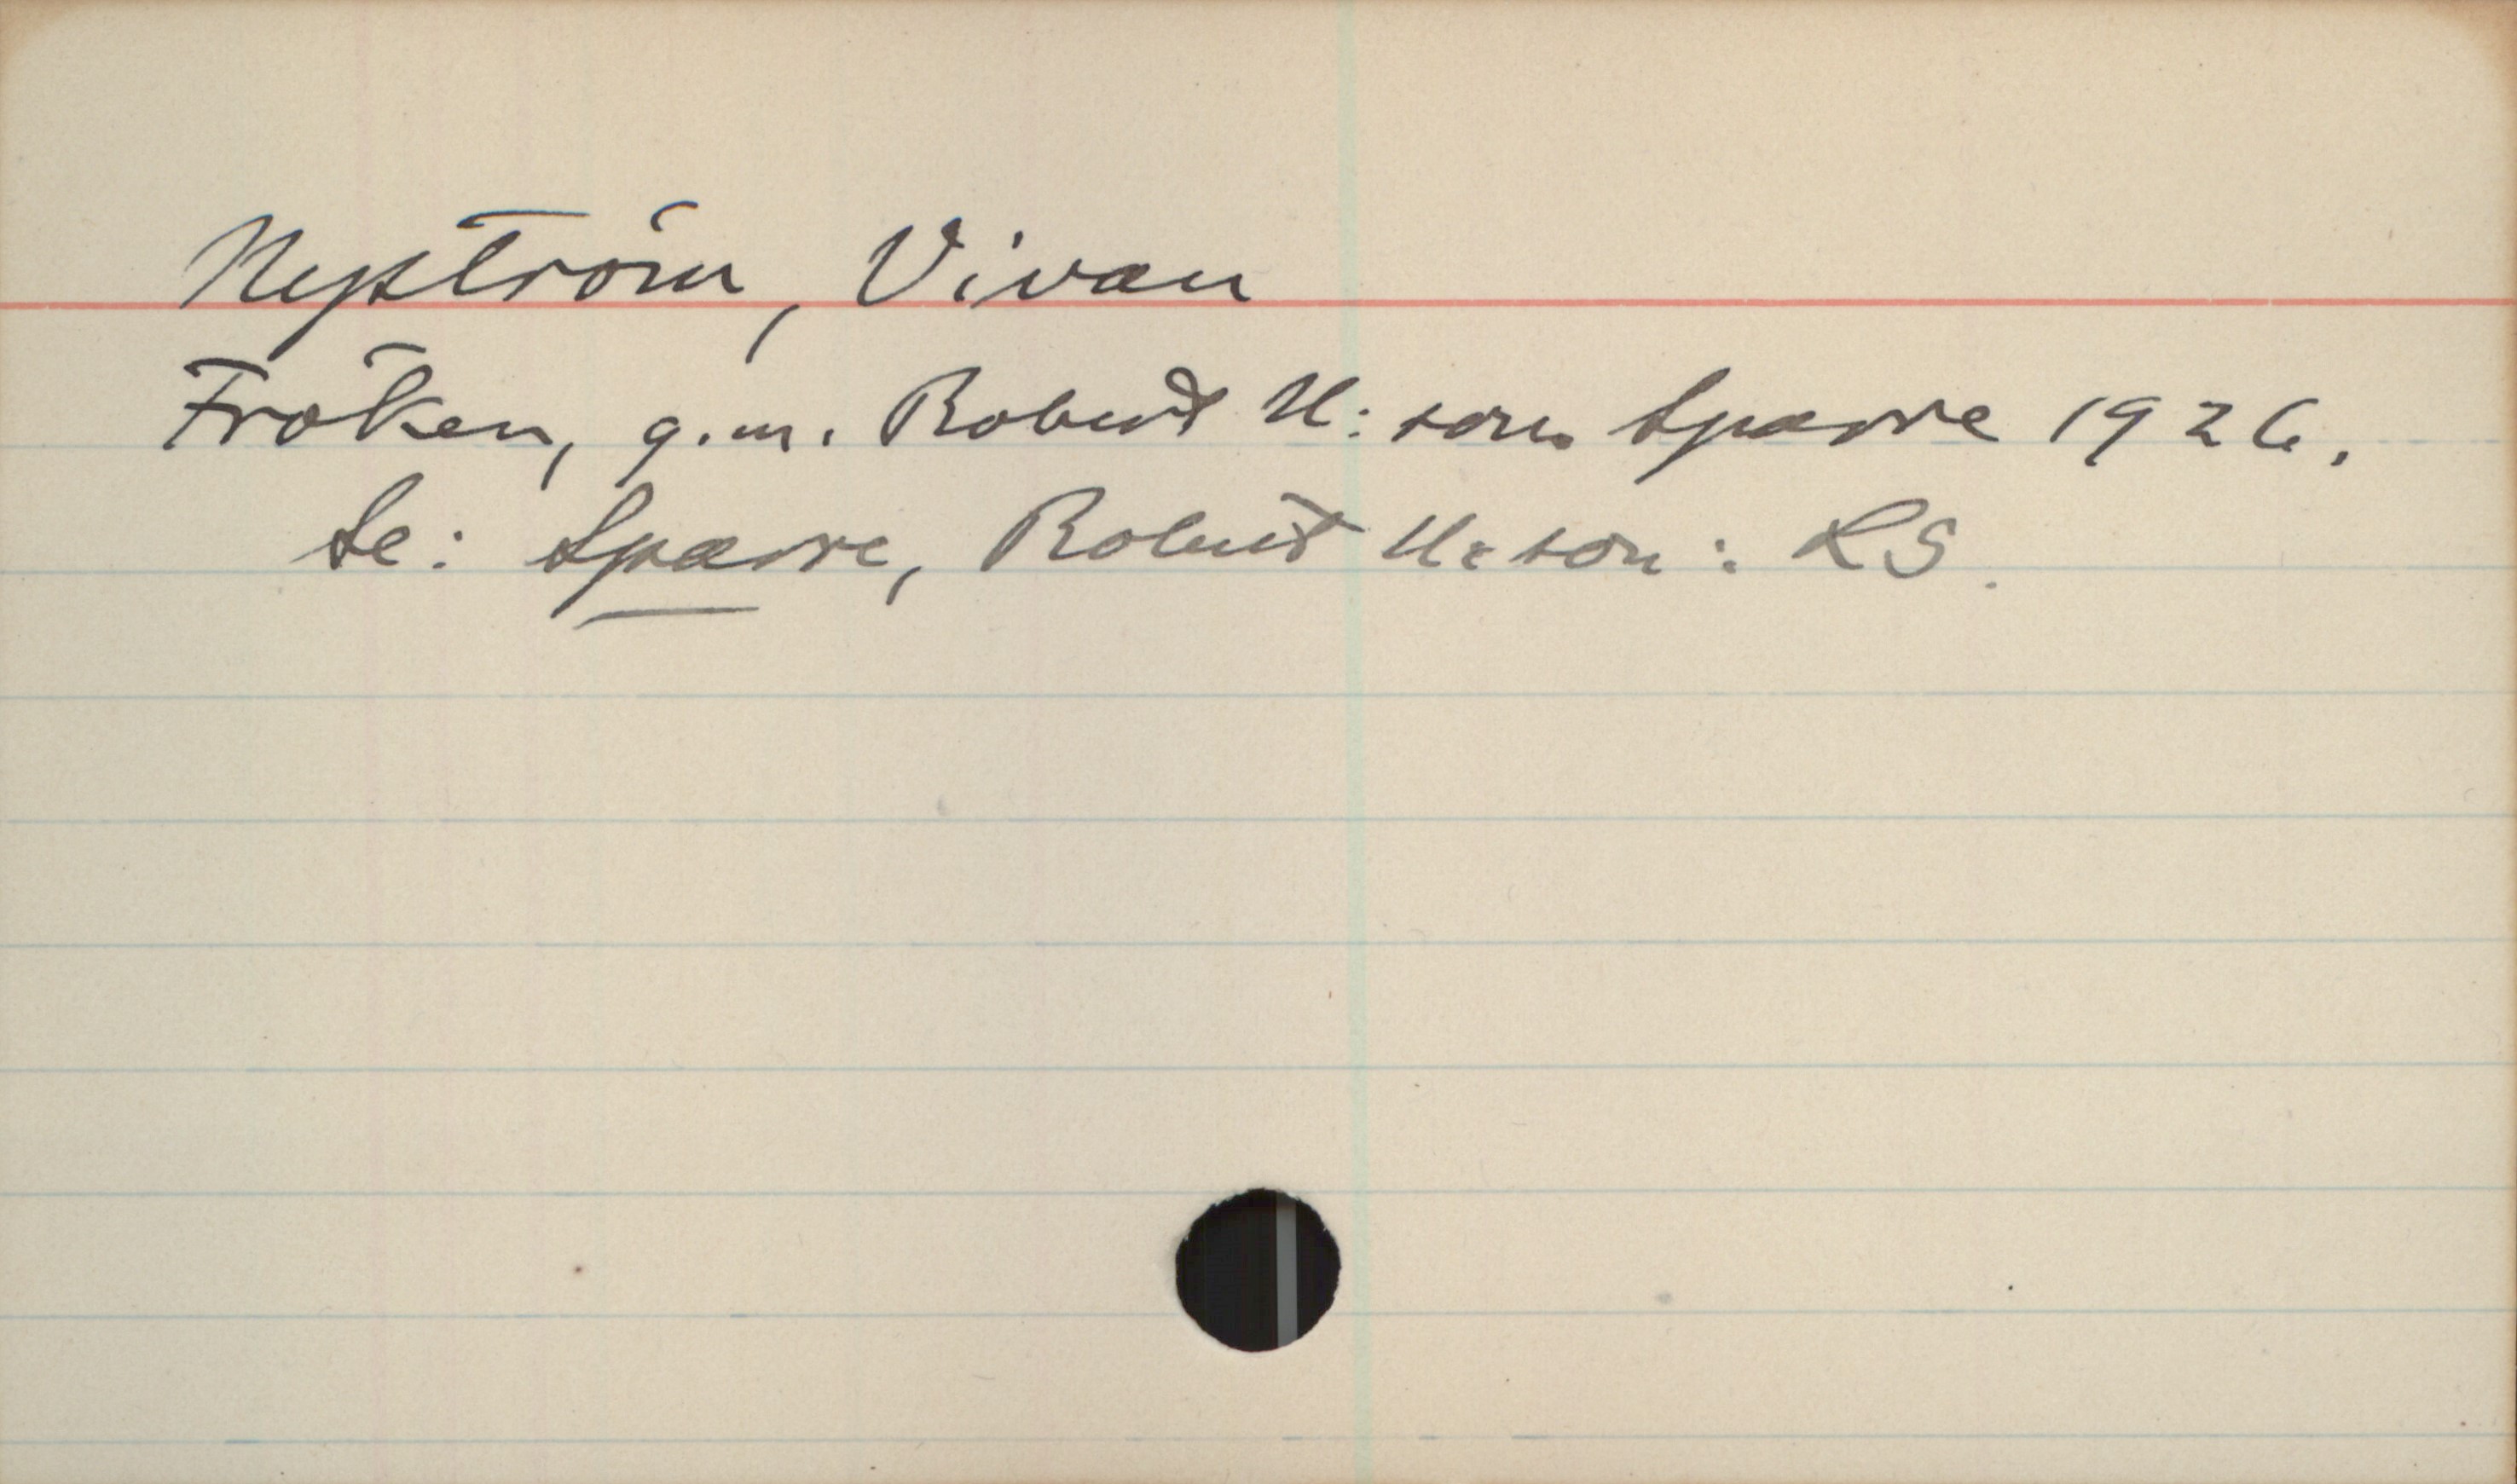 Nyström, Vivan
Fröken, g.m. Robert U:son Sparre 1926.
Se: Sparre, Robert U:son: LS.